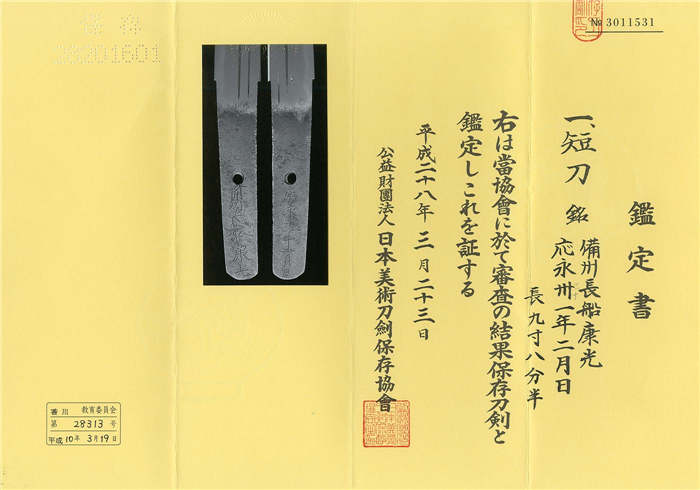 № 3011531
鑑定書
一、短刀 銘 備州長船康光
応永卅一年二月日
長九寸八分半
右は當協會に於て審査の結果保存刀剣と
鑑定しこれを証する
平成二十八年三月二十三日
公益財團法人 日本美術刀劍保存協會
香川 教育委員会
第 28313 号
平成10年 3月19日